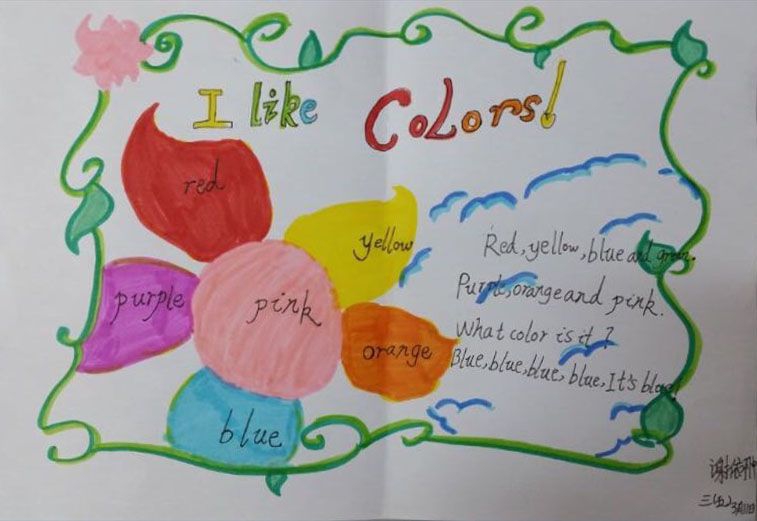 I like Colors!
red
yellow
purple
pink
orange
blue
Red, yellow, blue and green.
Purple, orange and pink.
What color is it?
Blue, blue, blue, blue, It's blue!
三(五)